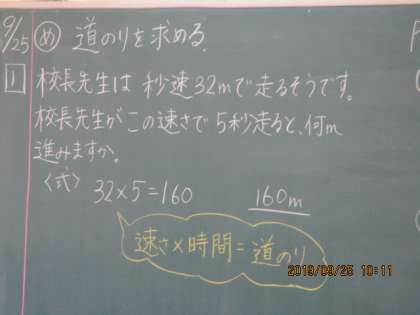 9/25 め 道のりを求める。
1 校長先生は 秒速32mで走るそうです。
校長先生がこの速さで 5秒走ると、何m
進みますか。
〈式〉
32×5=160 160m
速さ×時間=道のり
2019/09/25 10:11